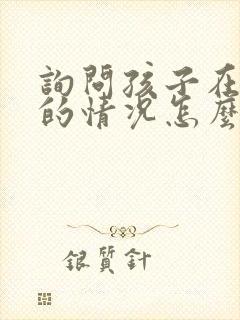 詢問孩子在
的情況怎麼
銀質針